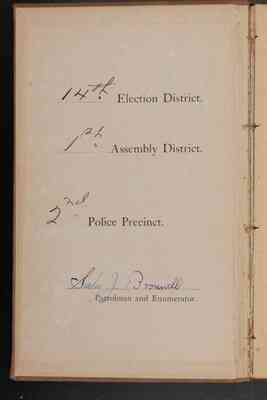 14th Election District.
1st Assembly District.
2nd Police Precinct.
J. Brownell
Patrolman and Enumerator.